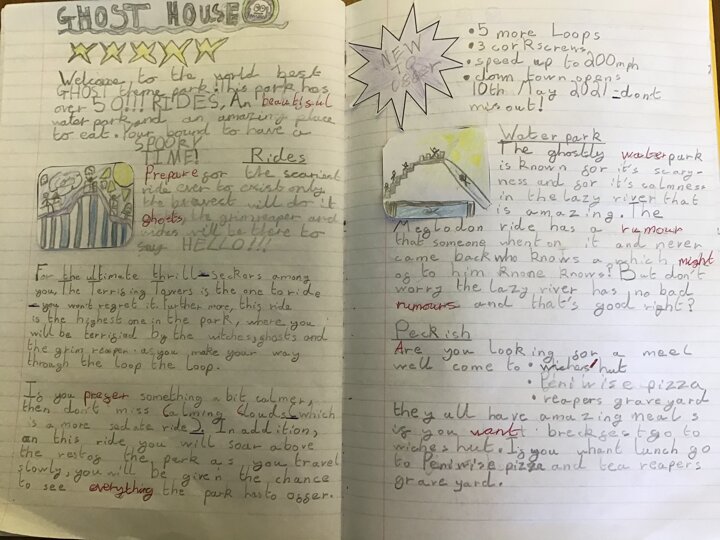 GHOST HOUSE
Welcome to the world best
GHOST theme park. This park has
over 50!!! RIDES, An beautisul
water park, and an amazing place
to eat. Your bound to have a
SPOOKY
TIME!
Rides
Prepare for the scariest
ride ever to exist only
the bravest will do it
ghosts, the grim reaper and
wiches will be there to
say HELLO!!!
For the ultimate thrill-seekors among
you, The Terrifing Towers is the one to ride
- you won't regret it. Further more, this ride
is the highest one in the park, where you
will be terrifiad by the witches, ghosts and
the grim reaper as you make your way
through the loop the loop.
If you prefer something a bit calmer,
then don't miss Calming Clouds (which
is a more sedate ride). In addition,
on this ride, you will soar above
the rest of the park as you travel
slowly, you will be given the chance
to see everything the park has to offer.
NEW
•5 more Loops
•3 corRscrews
•speed up to 200mph
•down town opens
10th May 2021 - dont
miss out!
Water park
The ghostly water park
is known for it's scary-
ness and for it's calmness
in the lazy river that
is amazing. The
Meglodon ride has a rumour
that someone whent on it and never
came back who knows a which might
og to him knone knows? But don't
worry the lazy river has no bad
rumours and that's good right?
Peckish
Are you looking for a meel
well come to • wiches' hut
• peniwise pizza
• reapers graveyard
they all have amazing meals
if you want breckfest go to
wiches hut. If you whant lunch go
to Peniwise pizza and tea reapers
grave yard.